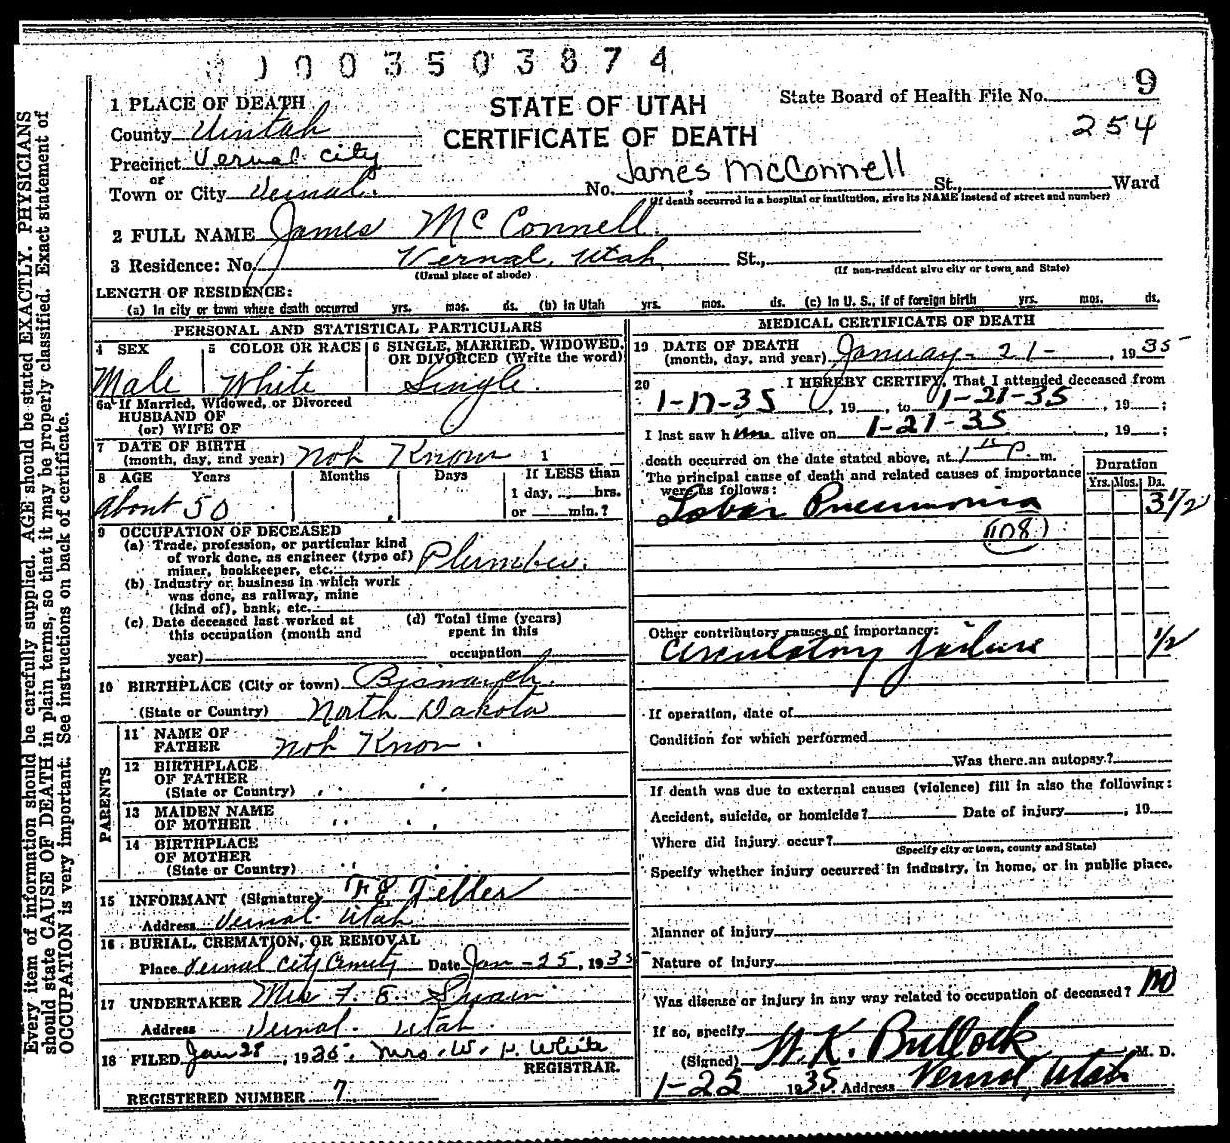 0003503874
1 PLACE OF DEATH
STATE OF UTAH
CERTIFICATE OF DEATH
State Board of Health File No. 9
254
County Uintah
Precinct Vernal City
or
Town or City Vernal. No. James McConnell St., Ward
(If death occurred in a hospital or institution, give its NAME instead of street and number)
2 FULL NAME James McConnell.
3 Residence: No. Vernal, Utah St.,
(Usual place of abode) (If non-resident give city or town and State)
LENGTH OF RESIDENCE:
(a) In city or town where death occurred yrs. mos. ds. (b) In Utah yrs. mos. ds. (c) In U. S., if of foreign birth yrs. mos. ds.
PERSONAL AND STATISTICAL PARTICULARS
4 SEX Male
5 COLOR OR RACE White
6 SINGLE, MARRIED, WIDOWED,
OR DIVORCED (Write the word)
Single.
6a If Married, Widowed, or Divorced
HUSBAND OF
(or) WIFE OF
7 DATE OF BIRTH
(month, day, and year) Not Know 1
8 AGE Years Months Days If LESS than
1 day, hrs.
or min.?
About 50
9 OCCUPATION OF DECEASED
(a) Trade, profession, or particular kind
of work done, as engineer (type of)
miner, bookkeeper, etc. Plumber.
(b) Industry or business in which work
was done, as railway, mine
(kind of), bank, etc.
(c) Date deceased last worked at
this occupation (month and
year)
(d) Total time (years)
spent in this
occupation
10 BIRTHPLACE (City or town) Bismarck.
(State or Country) North Dakota
PARENTS
11 NAME OF
FATHER Not Know.
12 BIRTHPLACE
OF FATHER
(State or Country) " "
13 MAIDEN NAME
OF MOTHER " "
14 BIRTHPLACE
OF MOTHER
(State or Country) " "
15 INFORMANT (Signature)
Address Vernal. Utah
16 BURIAL, CREMATION, OR REMOVAL
Place Vernal City Date Jan - 25, 1935
17 UNDERTAKER Mrs F. E. Swain
Address Vernal. Utah.
18 FILED Jan 28, 1935, Mrs. W. H. White
REGISTRAR.
REGISTERED NUMBER 7
MEDICAL CERTIFICATE OF DEATH
19 DATE OF DEATH
(month, day, and year) January - 21 - , 1935
20 I HEREBY CERTIFY, That I attended deceased from
1-17-35, 19 , to 1-21-35, 19 ;
I last saw him alive on 1-21-35, 19 ;
death occurred on the date stated above, at 1 15 P. m.
The principal cause of death and related causes of importance
were as follows:
Duration
Yrs. Mos. Ds.
Lobar Pneumonia 3 1/2
(108)
Other contributory causes of importance:
Circulatory failure 1/2
If operation, date of
Condition for which performed
Was there an autopsy?
If death was due to external causes (violence) fill in also the following:
Accident, suicide, or homicide? Date of injury , 19
Where did injury occur?
(Specify city or town, county and State)
Specify whether injury occurred in industry, in home, or in public place.
Manner of injury
Nature of injury
Was disease or injury in any way related to occupation of deceased? no
If so, specify
(Signed) W. K. Bullock M. D.
1-25 1935 Address Vernal, Utah
Every item of information should be carefully supplied. AGE should be stated EXACTLY. PHYSICIANS
should state CAUSE OF DEATH in plain terms, so that it may be properly classified. Exact statement of
OCCUPATION is very important. See instructions on back of certificate.